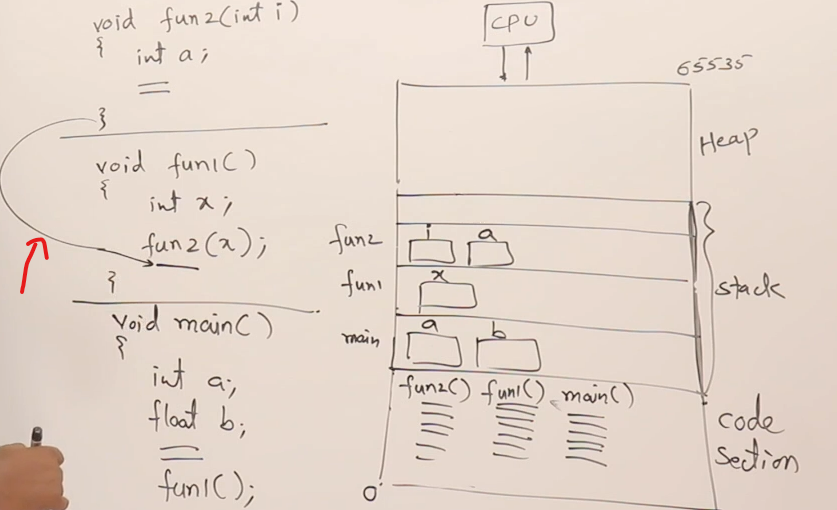 void fun2(int i)
{
int a;
}
void fun1()
{
int x;
fun2(x);
}
void main()
{
int a;
float b;
fun1();
CPU
65535
Heap
fun2
i
a
fun1
x
stack
main
a
b
fun2() fun1() main()
code
section
0